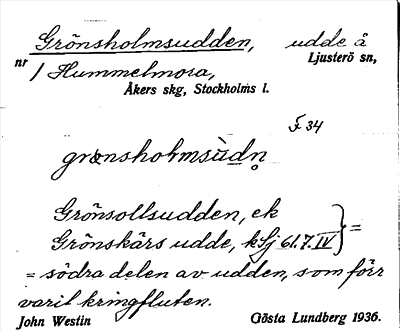 Grönsholmsudden, udde å
nr 1 Hummelmora, Ljusterö sn,
Åkers skg, Stockholms l.
F 34
grønsholmsùdn̥
Grönsollsudden, ek
Grönskärs udde, kSj 61.7.IV } =
= södra delen av udden, som förr
varit kringfluten.
John Westin Gösta Lundberg 1936.